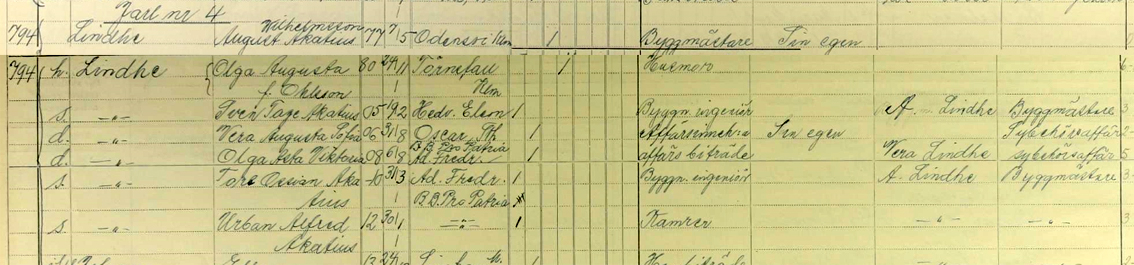 Jarl nr 4
Wilhelmsson
794 Lindhe August Akatius 77 7/5 Odensvi Klm 1 Byggmästare Sin egen
794 h. Lindhe Olga Augusta 80 24/11 Törnefall 1 Husmor 6-
f. Ohlsson 1 Klm
s. -"- Sven Tage Akatius 05 19/2 Hedv. Eleon 1 Byggn. ingeniör A. Lindhe Byggmästare 3
d. -"- Vera Augusta Sofia 06 31/8 Oscar, Sth 1 Sin egen Sybehörsaffär 2-
B.B. Pro Patria
d. -"- Olga Asta Viktoria 08 6/8 Ad. Fredr. 1 affärsbiträde Vera Lindhe sybehörsaffär 5
s. -"- Tore Ossian Aka 10 31/3 Ad. Fredr. 1 Byggn. ingeniör A. Lindhe Byggmästare 3
tius 1 B.B. Pro Patria
s. -"- Urban Alfred 12 30/1 -"- 1 Kamrer -"- -"- 3
Akatius 1